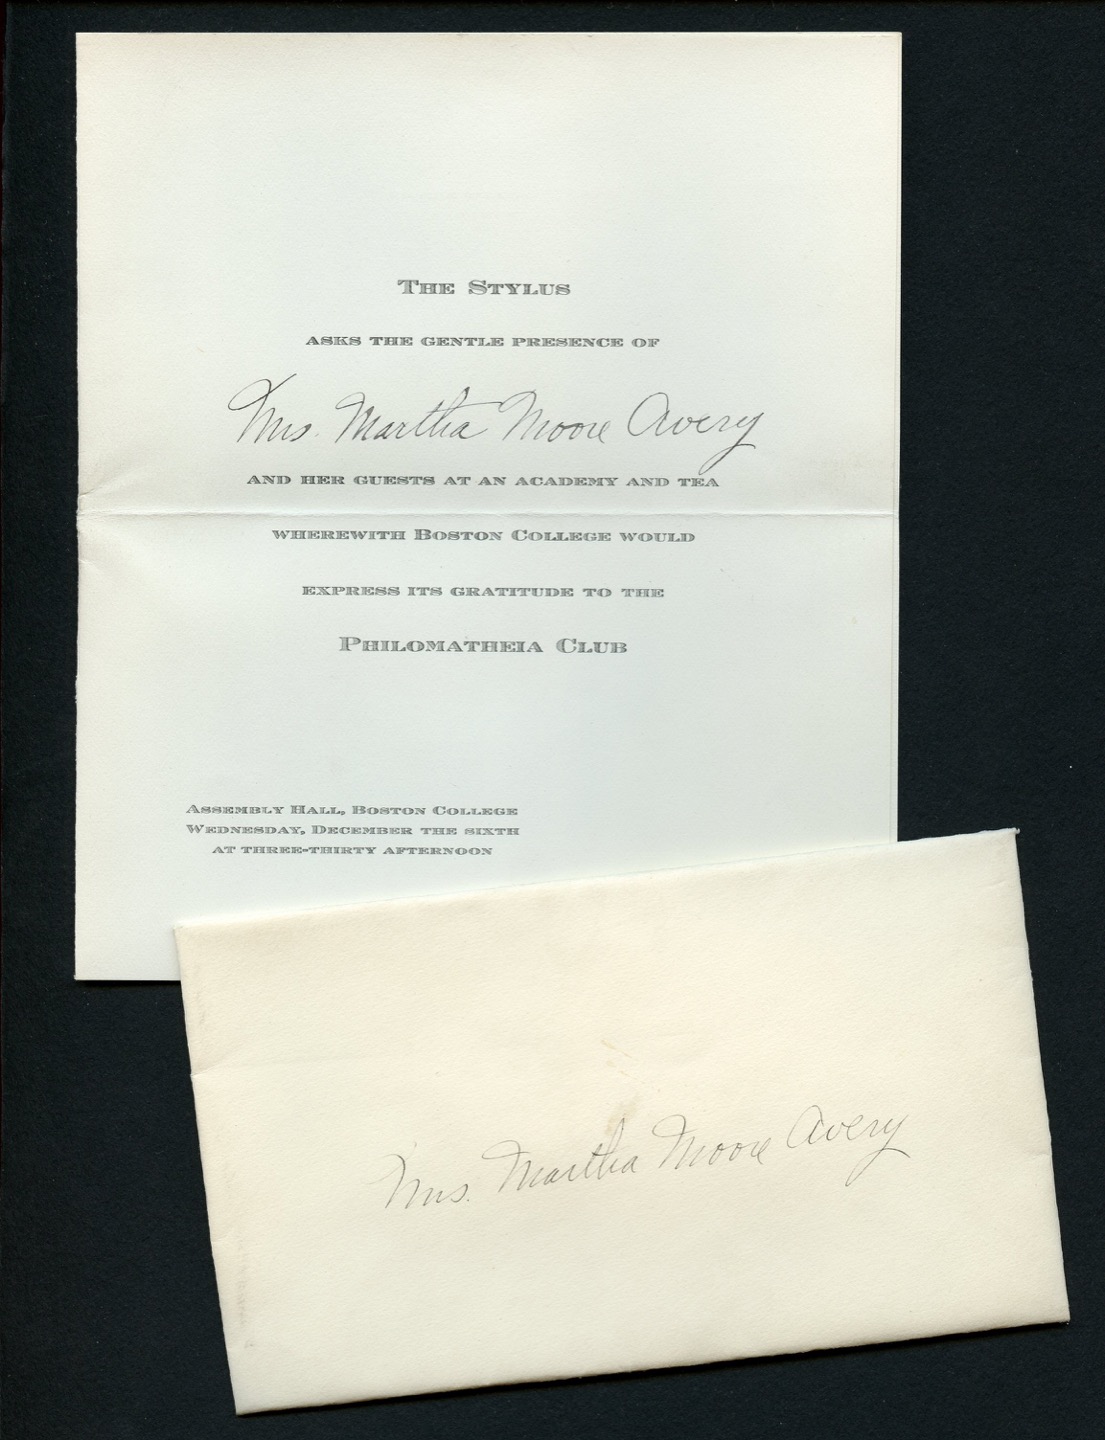 The Stylus
asks the gentle presence of
Mrs. Martha Moore Avery
and her guests at an academy and tea
wherewith Boston College would
express its gratitude to the
Philomatheia Club
Assembly Hall, Boston College
Wednesday, December the sixth
at three-thirty afternoon
Mrs. Martha Moore Avery